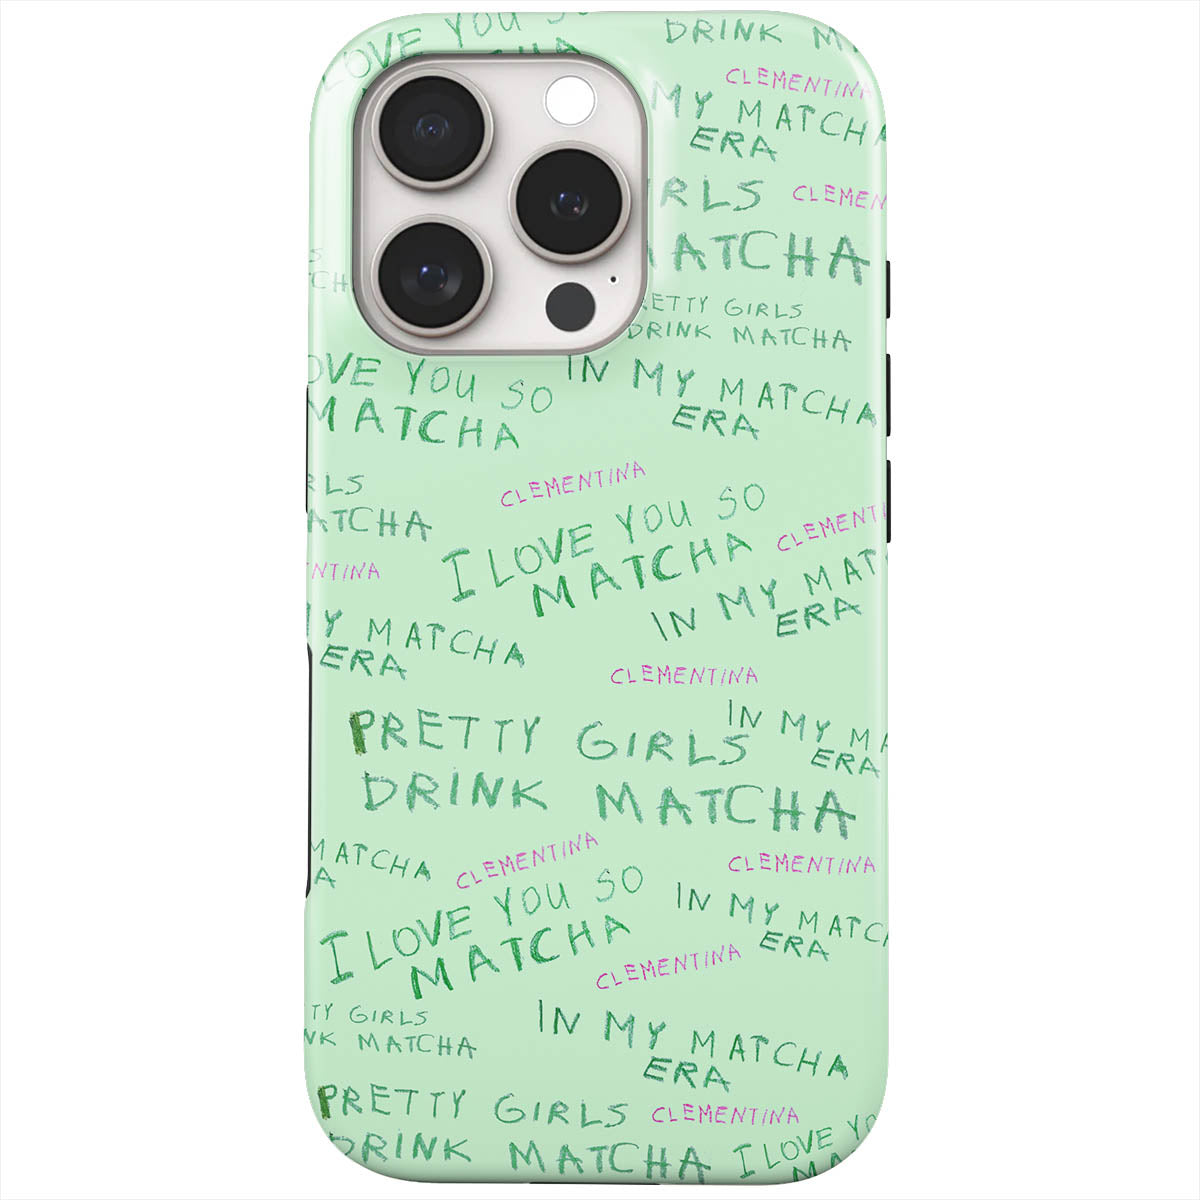 LOVE YOU SO
DRINK M
CLEMENTINA
MY MATCHA
ERA
IRLS
CLEMEN
MATCHA
ETTY GIRLS
DRINK MATCHA
S
CH
OVE YOU SO
MATCHA
IN MY MATCHA
ERA
RLS
ATCHA
CLEMENTINA
I LOVE YOU SO
MATCHA
CLEMENTI
NTINA
IN MY MAT
ERA
MY MATCHA
ERA
CLEMENTINA
PRETTY GIRLS
DRINK MATCHA
IN MY MA
ERA
MATCHA
A
CLEMENTINA
CLEMENTINA
I LOVE YOU SO
MATCHA
IN MY MATC
ERA
CLEMENTINA
TY GIRLS
NK MATCHA
IN MY MATCHA
ERA
PRETTY GIRLS
DRINK MATCHA
CLEMENTINA
I LOVE YO
MA